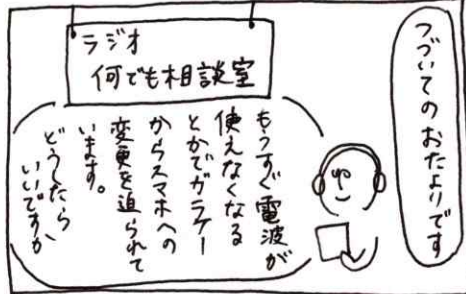 つづいてのおたよりです
ラジオ
何でも相談室
もうすぐ電波が
使えなくなる
とかでガラケー
からスマホへの
変更を迫られて
います。
どうしたら
いいですか